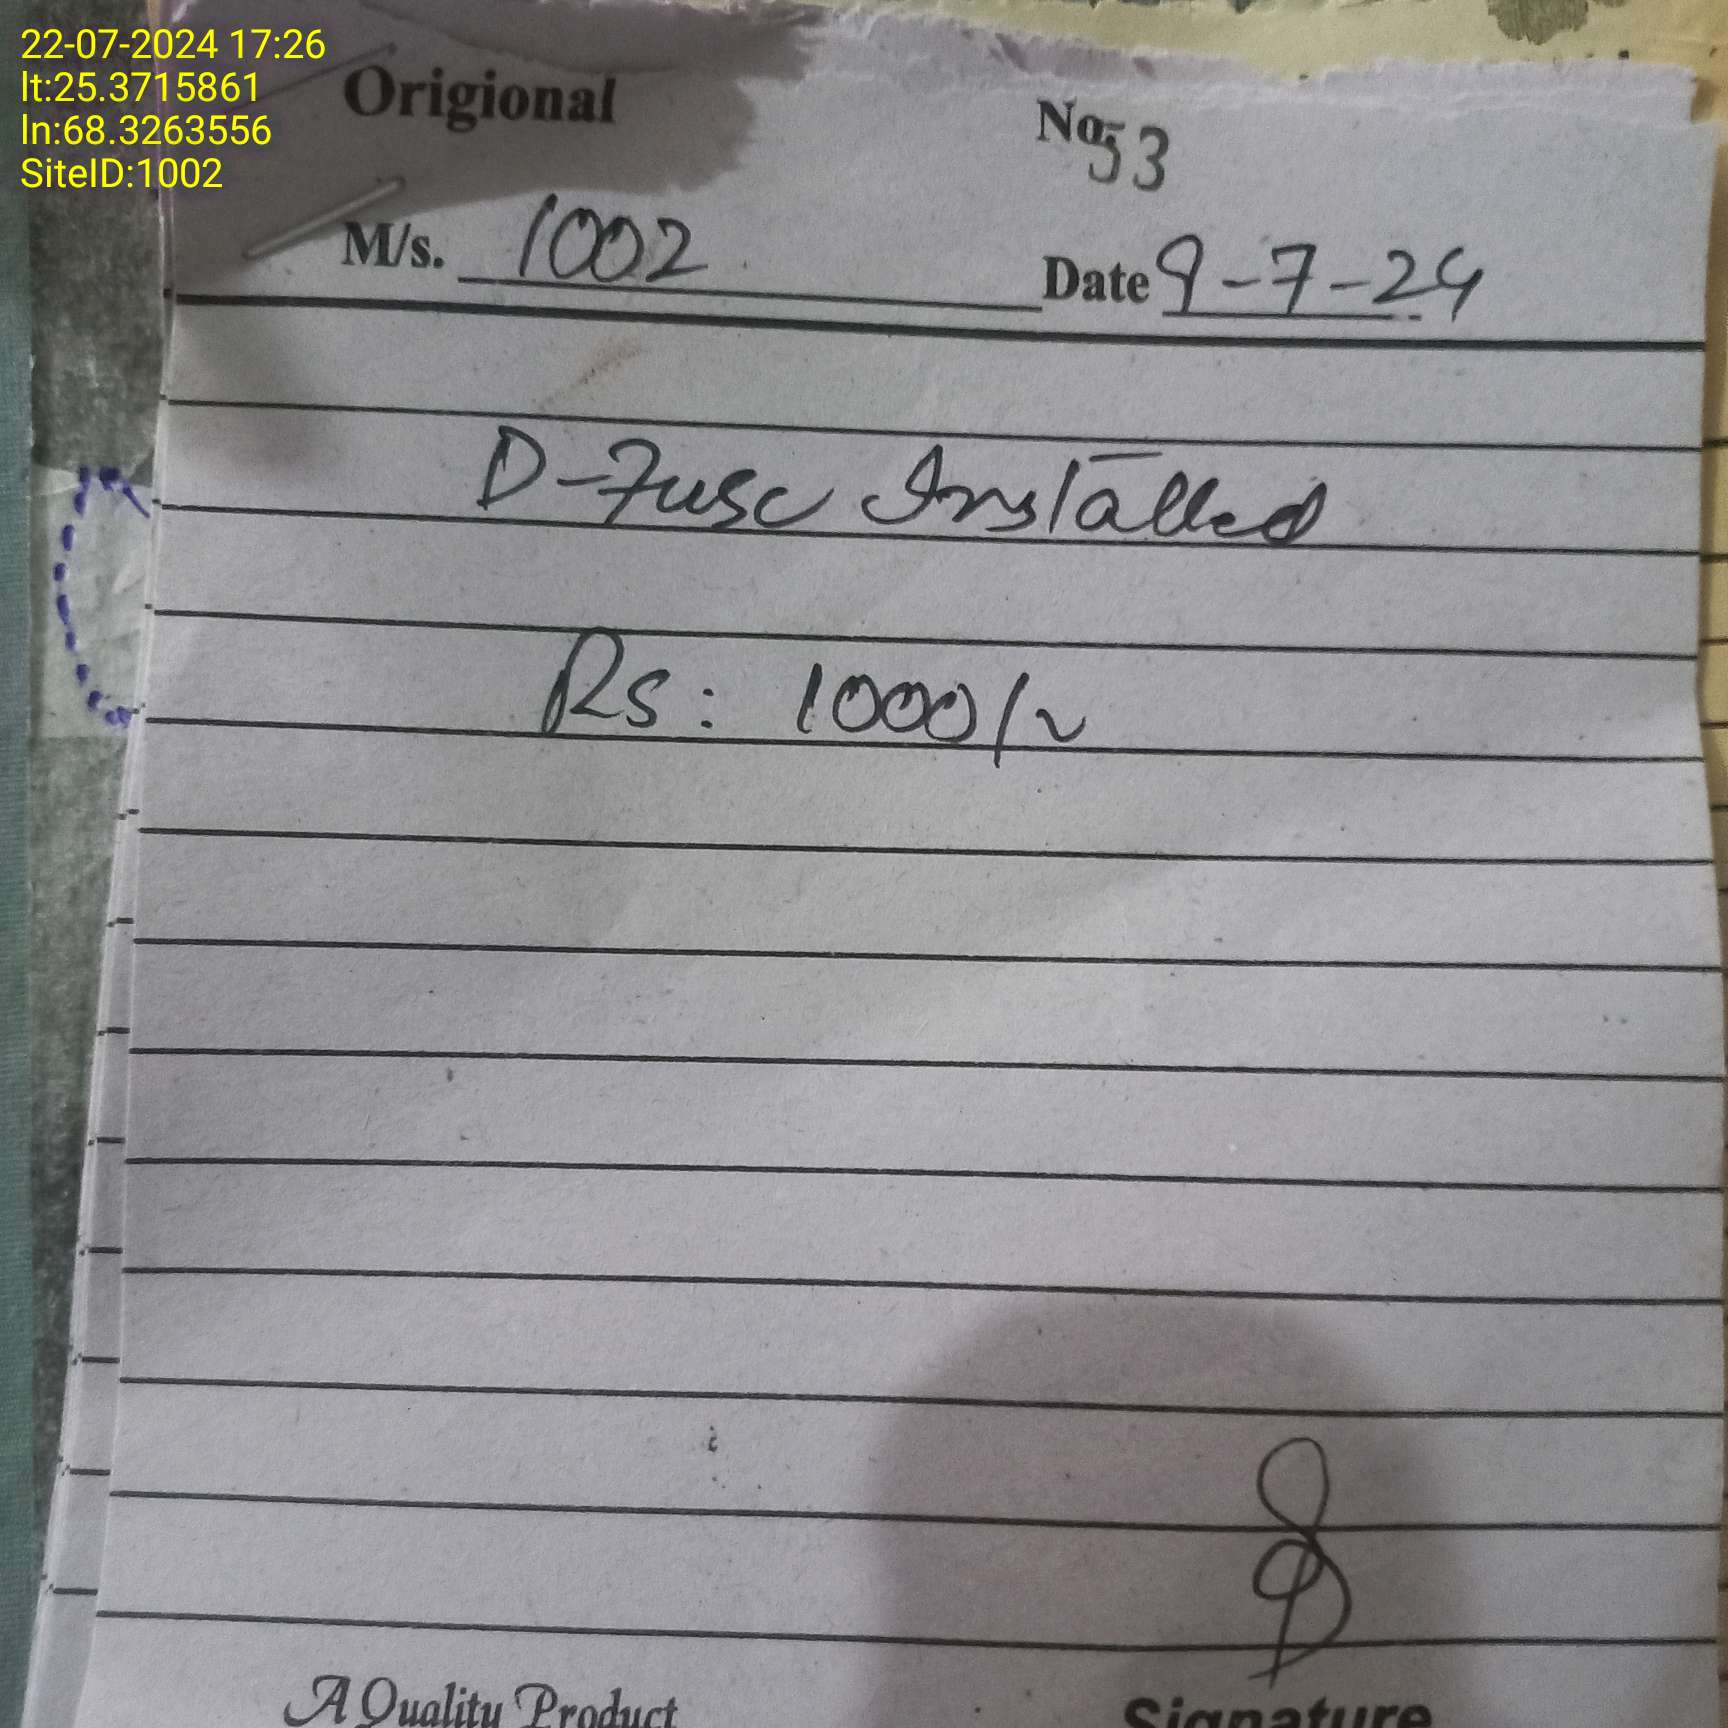 22-07-2024 17:26
lt:25.3715861
ln:68.3263556
SiteID:1002
Origional
No. 53
M/s. 1002
Date 9-7-24
D-Fuse Installed
Rs: 1000/~
A Quality Product
Signature